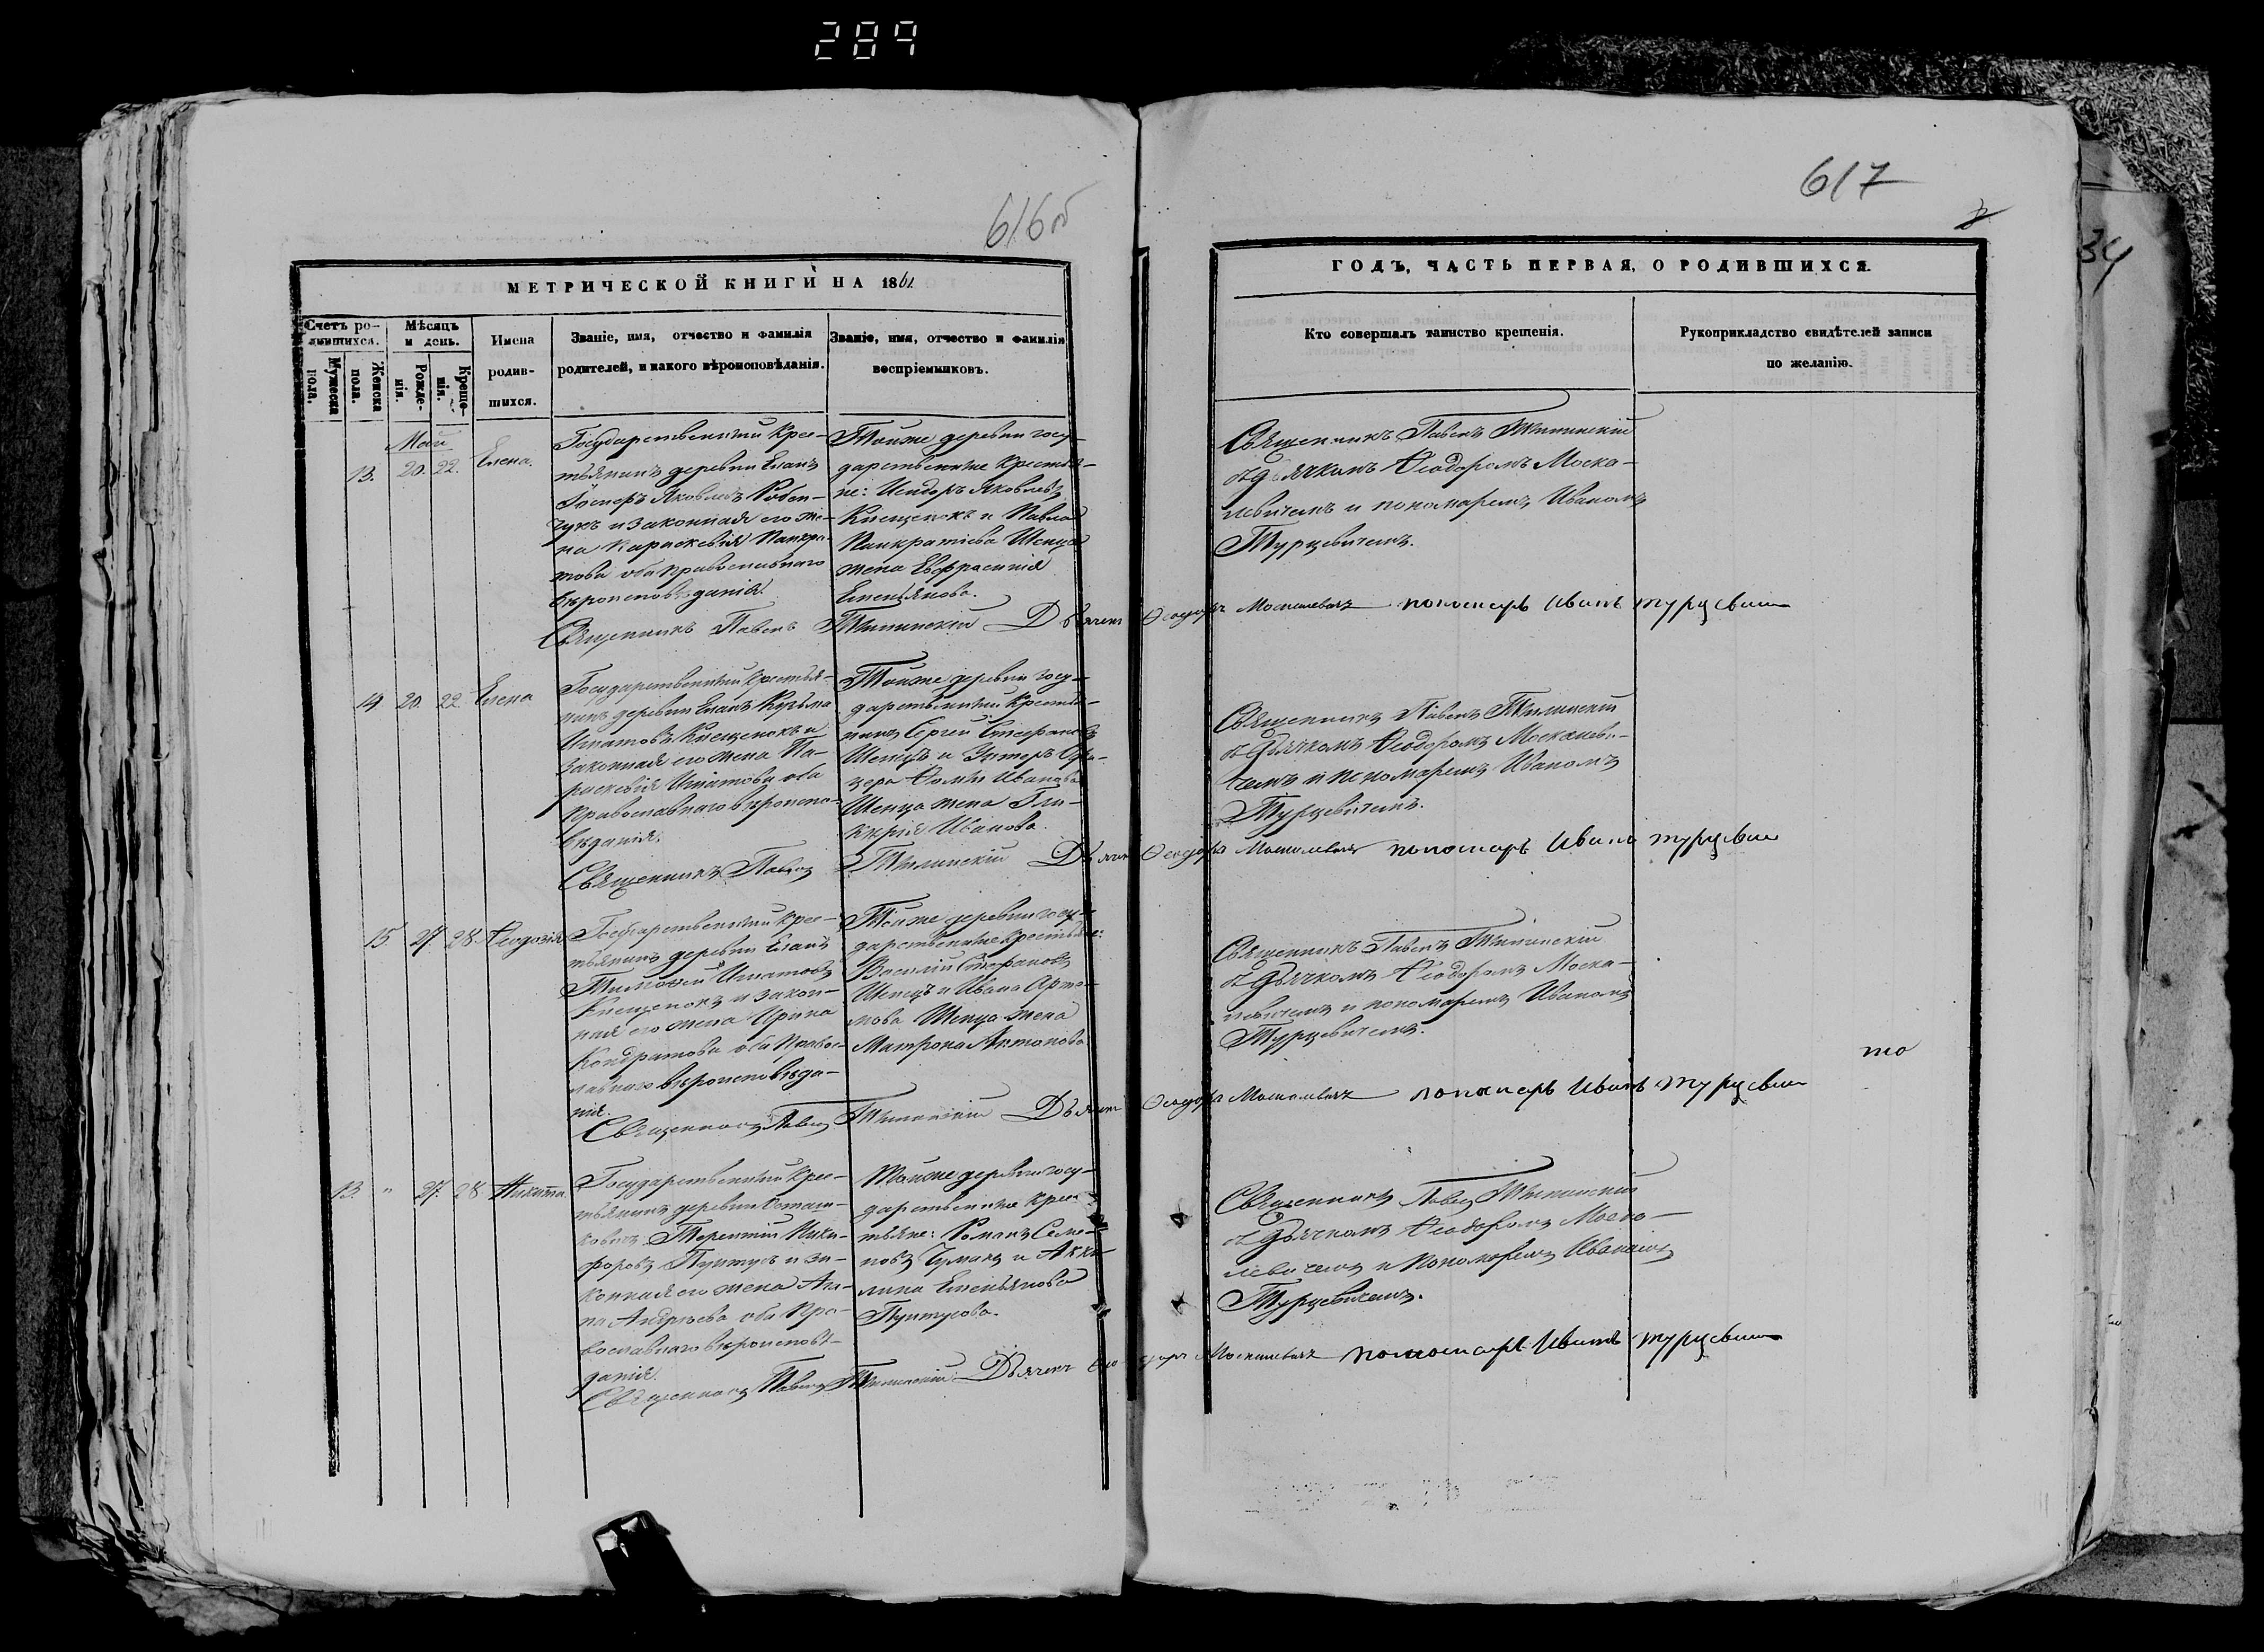 289
616об
617
34
МЕТРИЧЕСКОЙ КНИГИ НА 1861
ГОДЪ, ЧАСТЬ ПЕРВАЯ, О РОДИВШИХСЯ.
Счетъ ро-
дившихся.
Мужеска
пола.
Женска
пола.
Мѣсяцъ
и день.
Рожде-
нія.
Креще-
нія.
Имена
родив-
шихся.
Званіе, имя, отчество и фамилія
родителей, и какого вѣроисповѣданія.
Званіе, имя, отчество и фамилія
воспріемниковъ.
Кто совершалъ таинство крещенія.
Рукоприкладство свидѣтелей записи
по желанію.
Май
13. 20. 22. Елена.
Государственный Крес-
тьянинъ деревни
Яковлевъ
и законная его же-
на Параскевія Панкра-
това оба православнаго
вѣроисповѣданія.
Тойже деревни госу-
дарственные крестья-
не: Исидоръ Яковлевъ
Клещенокъ и Павла
Панкратіева Шепца
жена Евфросинія
Емельянова.
Священникъ Павелъ
съ дьячкомъ Ѳеодоромъ Моска-
левичемъ и пономаремъ Иваномъ
Турцевичемъ.
Священникъ Павелъ Дьячекъ Ѳеодоръ Москалевичъ пономарь Иванъ Турцевичъ
14 20. 22. Елена
Государственный крестья-
нинъ деревни Кузьма
Игнатовъ Клещенокъ и
законная его жена Па-
раскевія Игнатова оба
православнаго вѣроиспо-
вѣданія.
Тойже деревни госу-
дарственный крестья-
нинъ Сергей Стефановъ
Шепцъ и Унтеръ Офи-
цера Ѳомы Иванова
Шепца жена Гли-
керія Иванова.
Священникъ Павелъ
съ дьячкомъ Ѳеодоромъ Москалеви-
чемъ и пономаремъ Иваномъ
Турцевичемъ.
Священникъ Павелъ Дьячекъ Ѳеодоръ Москалевичъ пономарь Иванъ Турцевичъ
15 27 28 Ѳеодосія
Государственный крес-
тьянинъ деревни
Тимоѳей Игнатовъ
Клещенокъ и закон-
ная его жена Ирина
Кондратова оба право-
славнаго вѣроисповѣда-
нія.
Тойже деревни госу-
дарственные крестьяне:
Василій Стефановъ
Шепцъ и Ивана Арта-
мова Шепца жена
Матрона Антонова
Священникъ Павелъ
съ дьячкомъ Ѳеодоромъ Моска-
левичемъ и пономаремъ Иваномъ
Турцевичемъ.
то
Священникъ Павелъ Дьячекъ Ѳеодоръ Москалевичъ пономарь Иванъ Турцевичъ
13. " 27. 28 Никита.
Государственный крес-
тьянинъ деревни
Терентій Ники-
форовъ Пунтусъ и за-
конная его жена Ан-
на Андреева оба пра-
вославнаго вѣроисповѣ-
данія.
Тойже деревни госу-
дарственные крес-
тьяне: Романъ Семе-
новъ Чумакъ и Аки-
лина Емельянова
Пунтусова.
Священникъ Павелъ
съ дьячкомъ Ѳеодоромъ Моска-
левичемъ и пономаремъ Иваномъ
Турцевичемъ.
Священникъ Павелъ Дьячекъ Ѳеодоръ Москалевичъ пономарь Иванъ Турцевичъ